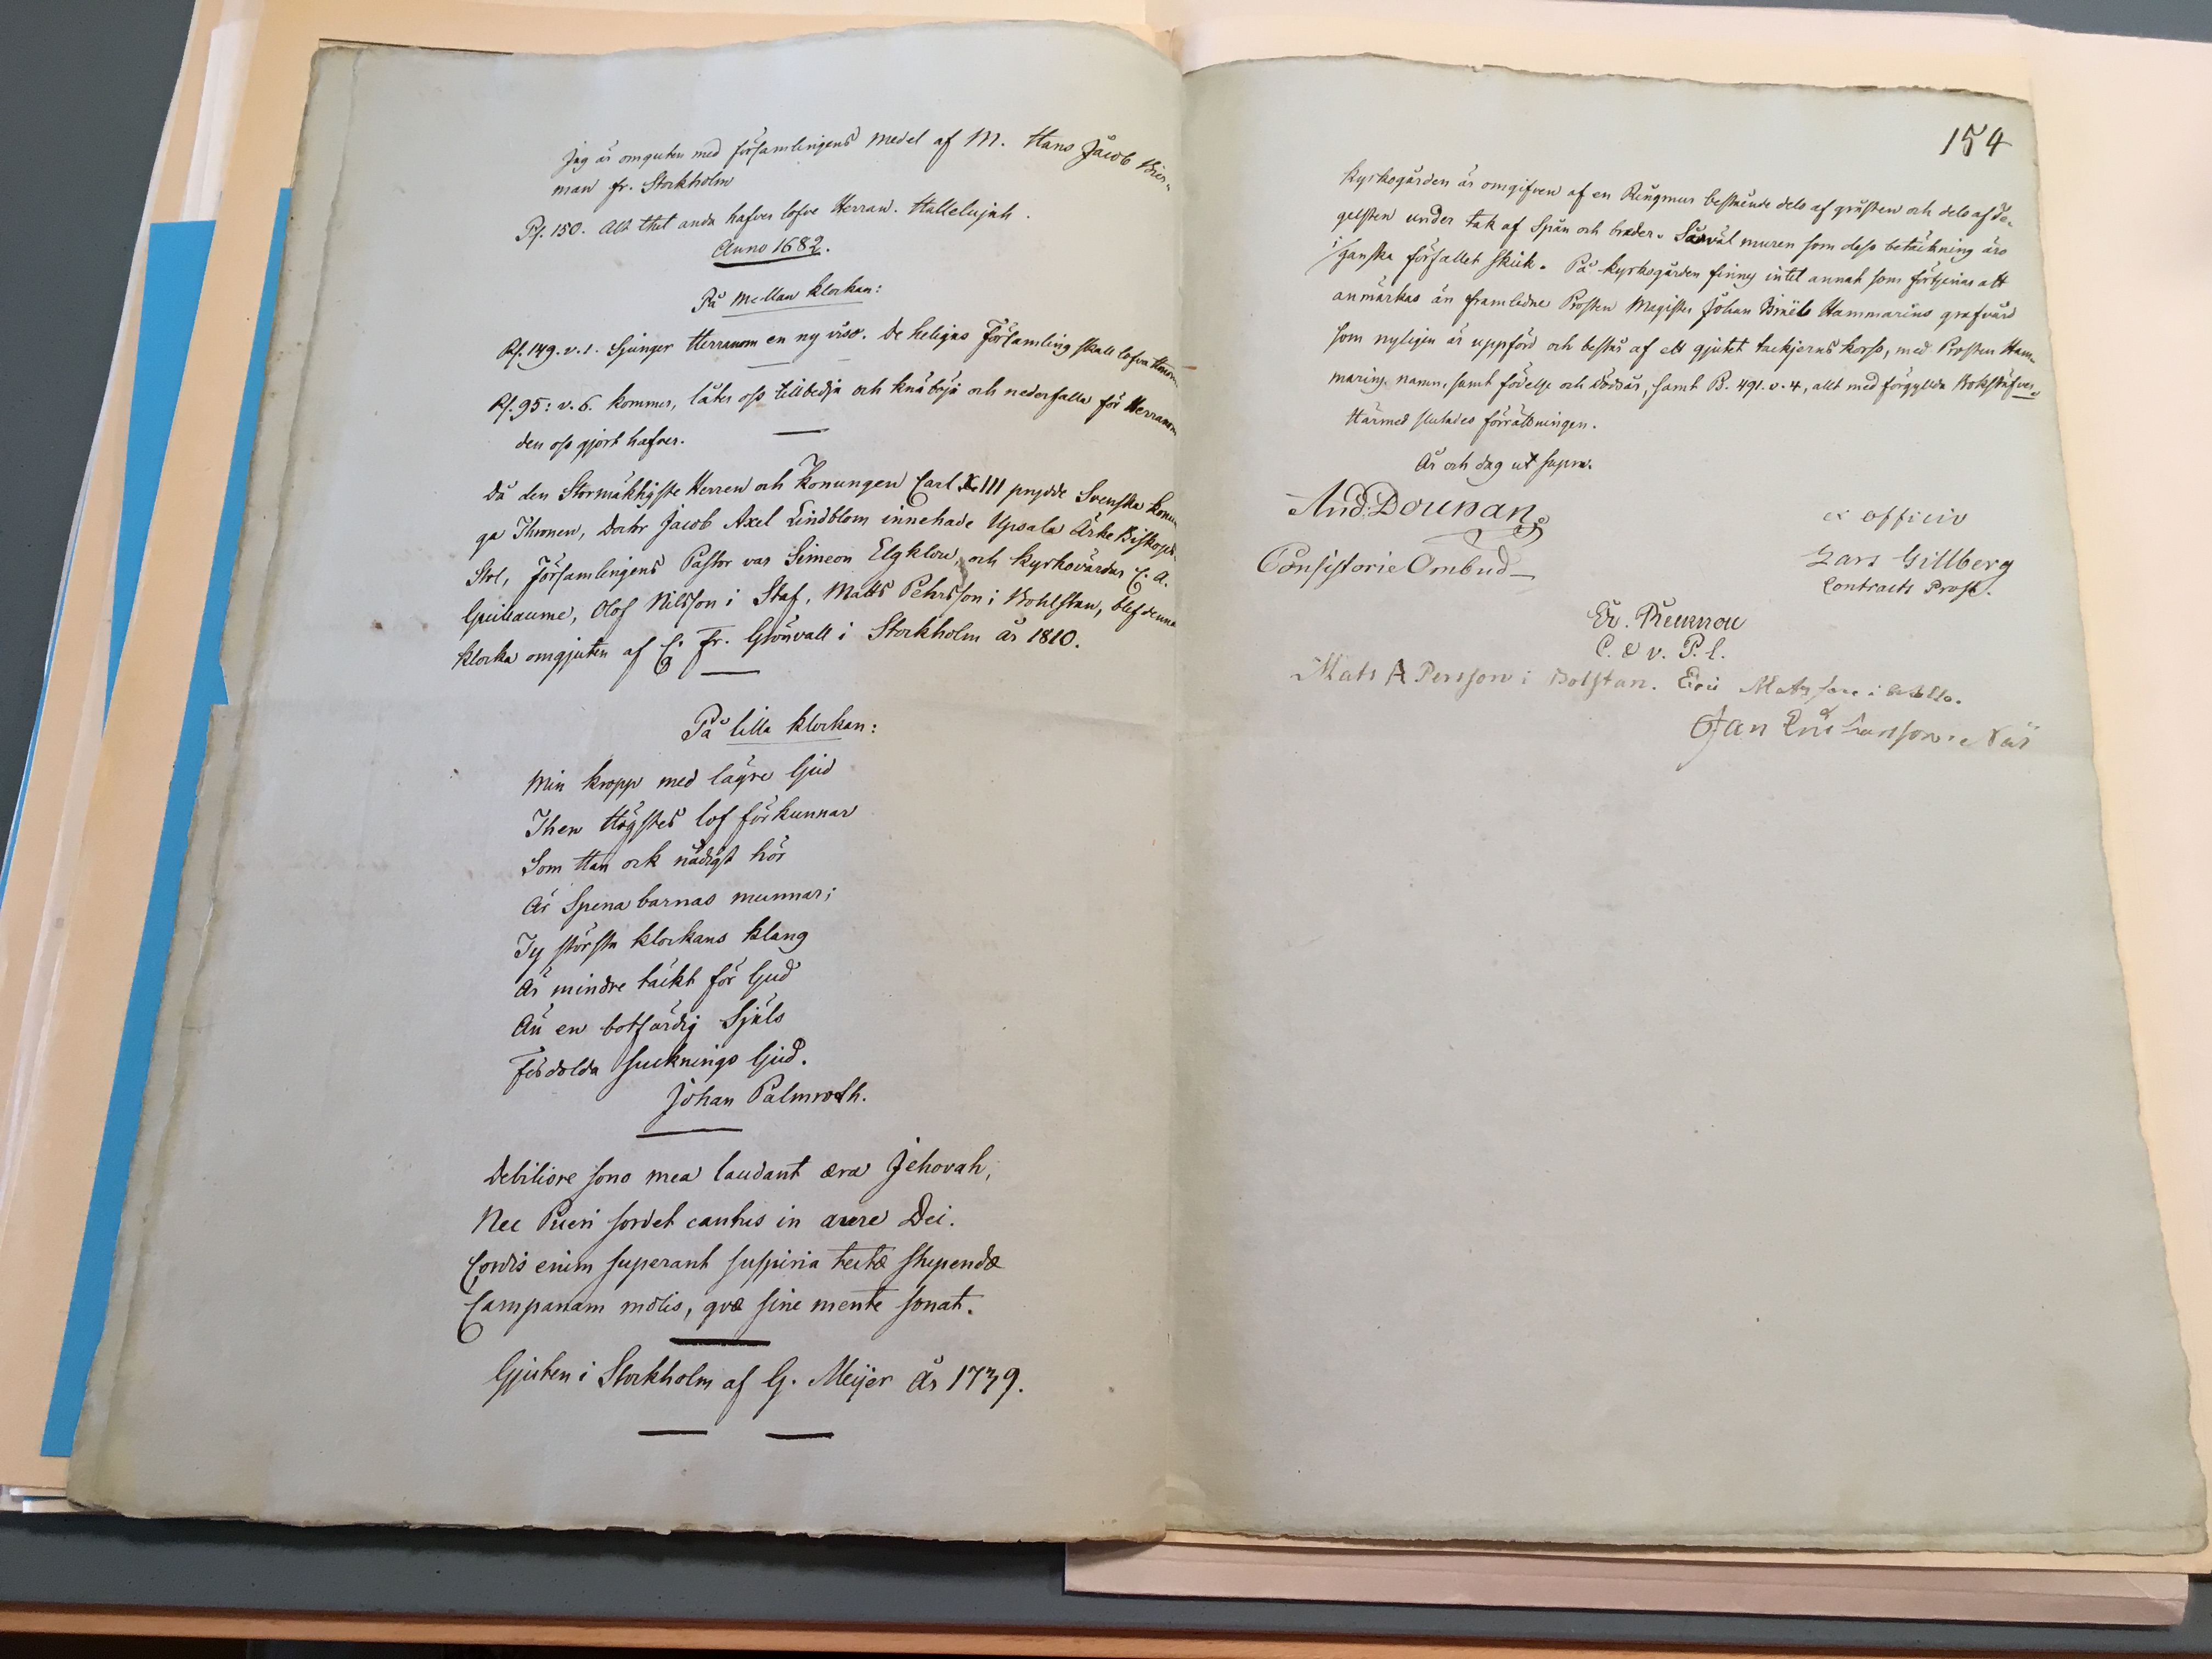 Jag är omguten med församlingens medel af M. Hans Jacob
man fr. Stockholm
Ps. 150. Alt thet anda hafver lofve Herran. Hallelujah.
Anno 1682.
På Mellan klockan:
Ps. 149. v. 1. Sjunger Herranom en ny viso. De heligas Församling skall lofva Honom
Ps. 95: v. 6. Kommer, låter oss tillbedja och knäböja och nederfalla för Herranom
den oss gjort hafver.
Då den Stormäktigste Herren och Konungen Carl XIII prydde Svenska Konun
ga Thronen, Doctor Jacob Axel Lindblom innehade Upsala Ärke Biskops
Stol, Församlingens Pastor var Simeon Elgklou, och Kyrkovärdar C. A.
Guillaume, Olof Nilsson i Staf, Matts Pehrsson i Bohlstan, blef denna
klocka omgjuten af C. Fr. Grönvall i Stockholm år 1810.
På lilla klockan:
Min kropp med lägre ljud
Then Högstes lof förkunnar
Som Han ock nådigt hör
Af Spena barnas munnar;
Ty största klockans klang
Är mindre täckt för Gud
Än en botfärdig Själs
Fördolda sucknings ljud.
Johan Palmroth.
Debiliore sono mea laudant æra Jehovah,
Nec Pueri sordet cantus in aure Dei.
Cordis enim superant suspiria tectæ stupendæ
Campanam molis, qvæ sine mente sonat.
Gjuten i Stockholm af G. Meijer År 1739.
154
Kyrkogården är omgifven af en Ringmur bestående dels af gråsten och dels af Te-
gelsten under tak af Spån och bräder. Såväl muren som dess betäckning äro
i ganska förfallet skick. På kyrkogården finnes intet annat som förtjenar att
anmärkas än framledne Prosten Magister Johan Hammarins grafvård
som nyligen är uppförd och består af ett gjutet tackjerns kors, med Prosten Ham-
marins namn, samt födelse och dödsår, samt Ps. 491. v. 4, allt med förgyllda Bokstäfver
Härmed slutades förrättningen.
År och dag ut supra.
And: Dounan
Consistorie Ombud
ex officio
Lars Gillberg
Contracts Prost.
Er.
C. & v. P. l.
Mats A Persson i Bolstan. Eric Matsson i
Jan Eric Larsson i Näs